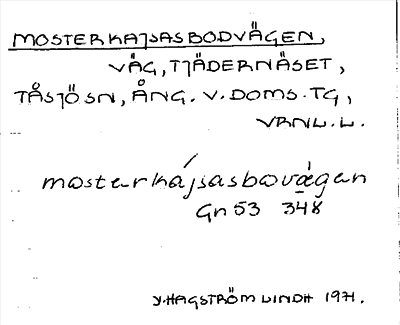 MOSTERKAJSASBODVÄGEN,
VÄG, TJÄDERNÄSET,
TÅSJÖSN, ÅNG. V. DOMS. TG,
VRNL. L.
mosterkájsasbovägen
Gn 53 348
Y. HAGSTRÖM LINDH 1971.